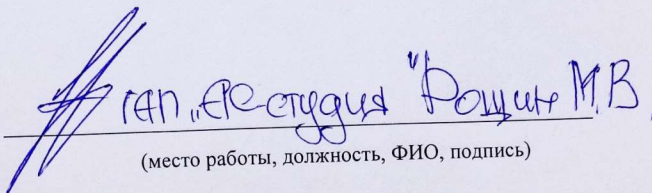 ГАП „АРС-студия" Рощин М.В
(место работы, должность, ФИО, подпись)